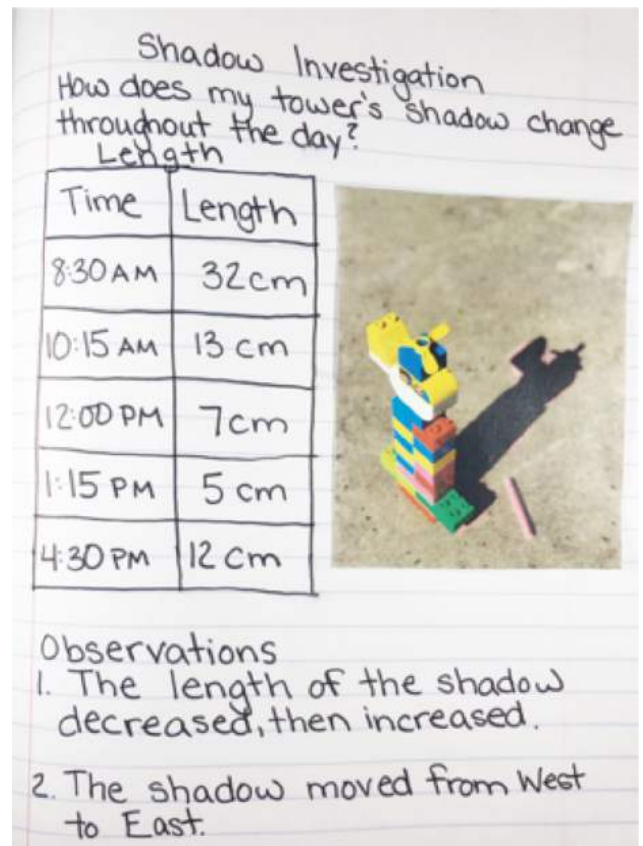 Shadow Investigation
How does my tower's shadow change
throughout the day?
Length
Time Length
8:30 AM 32cm
10:15 AM 13 cm
12:00 PM 7cm
1:15 PM 5 cm
4:30 PM 12 cm
Observations
1. The length of the shadow
decreased, then increased.
2. The shadow moved from West
to East.